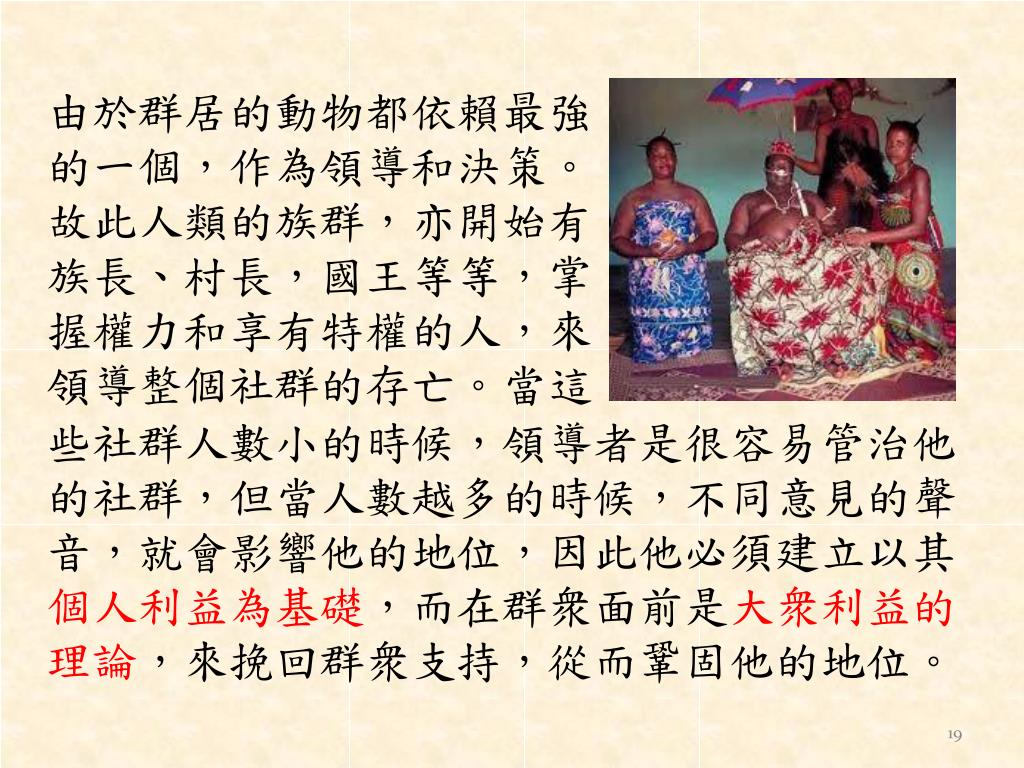 由於群居的動物都依賴最強
的一個，作為領導和決策。
故此人類的族群，亦開始有
族長、村長，國王等等，掌
握權力和享有特權的人，來
領導整個社群的存亡。當這
些社群人數小的時候，領導者是很容易管治他
的社群，但當人數越多的時候，不同意見的聲
音，就會影響他的地位，因此他必須建立以其
個人利益為基礎，而在群衆面前是大衆利益的
理論，來挽回群衆支持，從而鞏固他的地位。
19